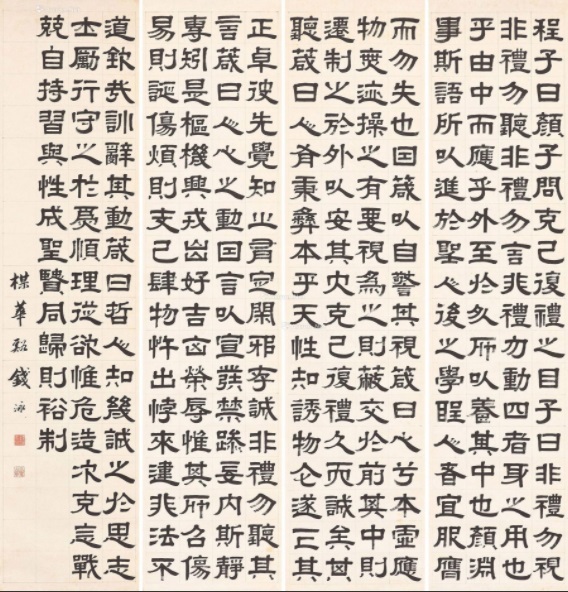 程子曰顏子問克己復禮之目子曰非禮勿視
非禮勿聽非禮勿言非禮勿動四者身之用也
乎由中而應乎外至於外所以養其中也顏淵
事斯語所以進於聖人後之學聖人者宜服膺
而勿失也因箴以自警其視箴曰心兮本虛應
物無迹操之有要視為之則蔽交於前其中則
遷制之於外以安其內克己復禮久而誠矣其
聽箴曰人有秉彝本乎天性知誘物化遂亡其
正卓彼先覺知止有定閑邪存誠非禮勿聽其
言箴曰人心之動因言以宣發禁躁妄內斯靜
專矧是樞機興戎出好吉凶榮辱惟其所召傷
易則誕傷煩則支己肆物忤出悖來違非法不
道欽哉訓辭其動箴曰哲人知幾誠之於思志
士厲行守之於為順理從欲惟危造次克念戰
兢自持習與性成聖賢同歸則裕制
楳華谿錢泳